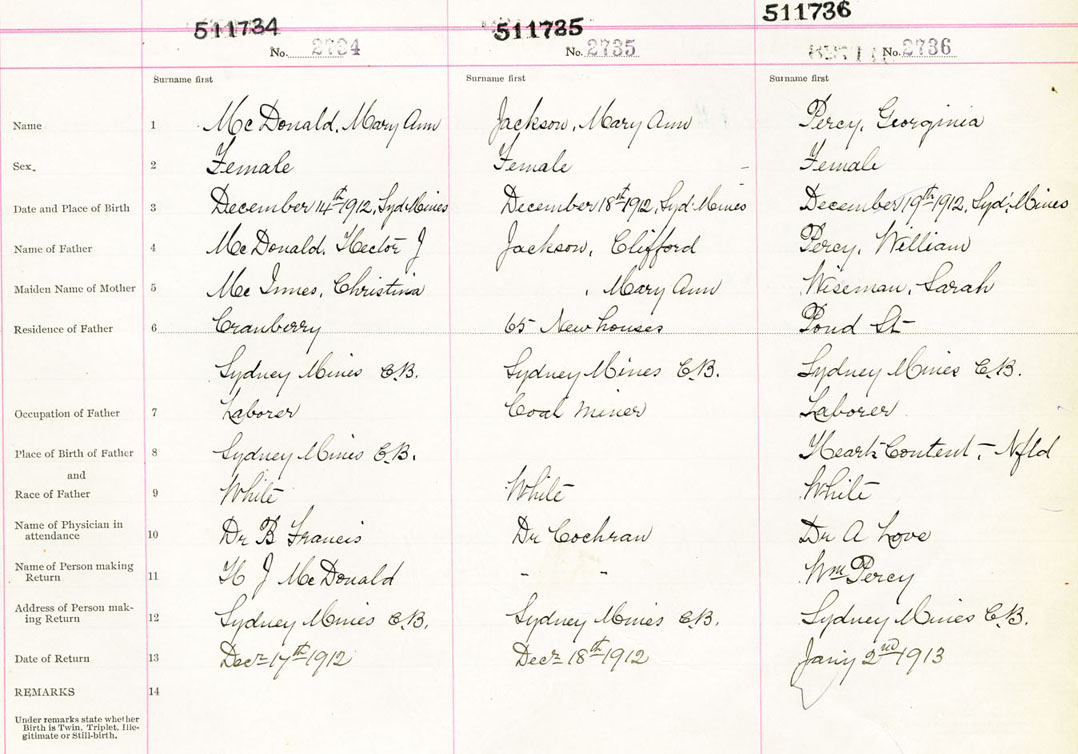 511734 511735 511736
No. 2734 No. 2735 No. 2736
Surname first Surname first Surname first
Name 1 McDonald, Mary Ann Jackson, Mary Ann Percy, Georginia
Sex. 2 Female Female - Female
Date and Place of Birth 3 December 14th 1912, Syd Mines December 18th 1912, Syd Mines December 19th 1912, Syd. Mines
Name of Father 4 McDonald, Hector J Jackson, Clifford Percy, William
Maiden Name of Mother 5 McInnes, Christina , Mary Ann Wiseman, Sarah
Residence of Father 6 Cranberry 65 New houses Pond St
Sydney Mines C.B. Sydney Mines C.B. Sydney Mines C.B.
Occupation of Father 7 Laborer Coal miner Laborer
Place of Birth of Father 8 Sydney Mines C.B. Heart Content, - Nfld
and
Race of Father 9 White White White
Name of Physician in
attendance 10 Dr B Francis Dr Cochran Dr A Love
Name of Person making
Return 11 H J McDonald - - Wm Percy
Address of Person mak-
ing Return 12 Sydney Mines C.B. Sydney Mines C.B. Sydney Mines C.B.
Date of Return 13 Decr 17th 1912 Decr 18th 1912 Jany 2nd 1913
REMARKS 14
Under remarks state whether
Birth is Twin, Triplet, Ille-
gitimate or Still-birth.